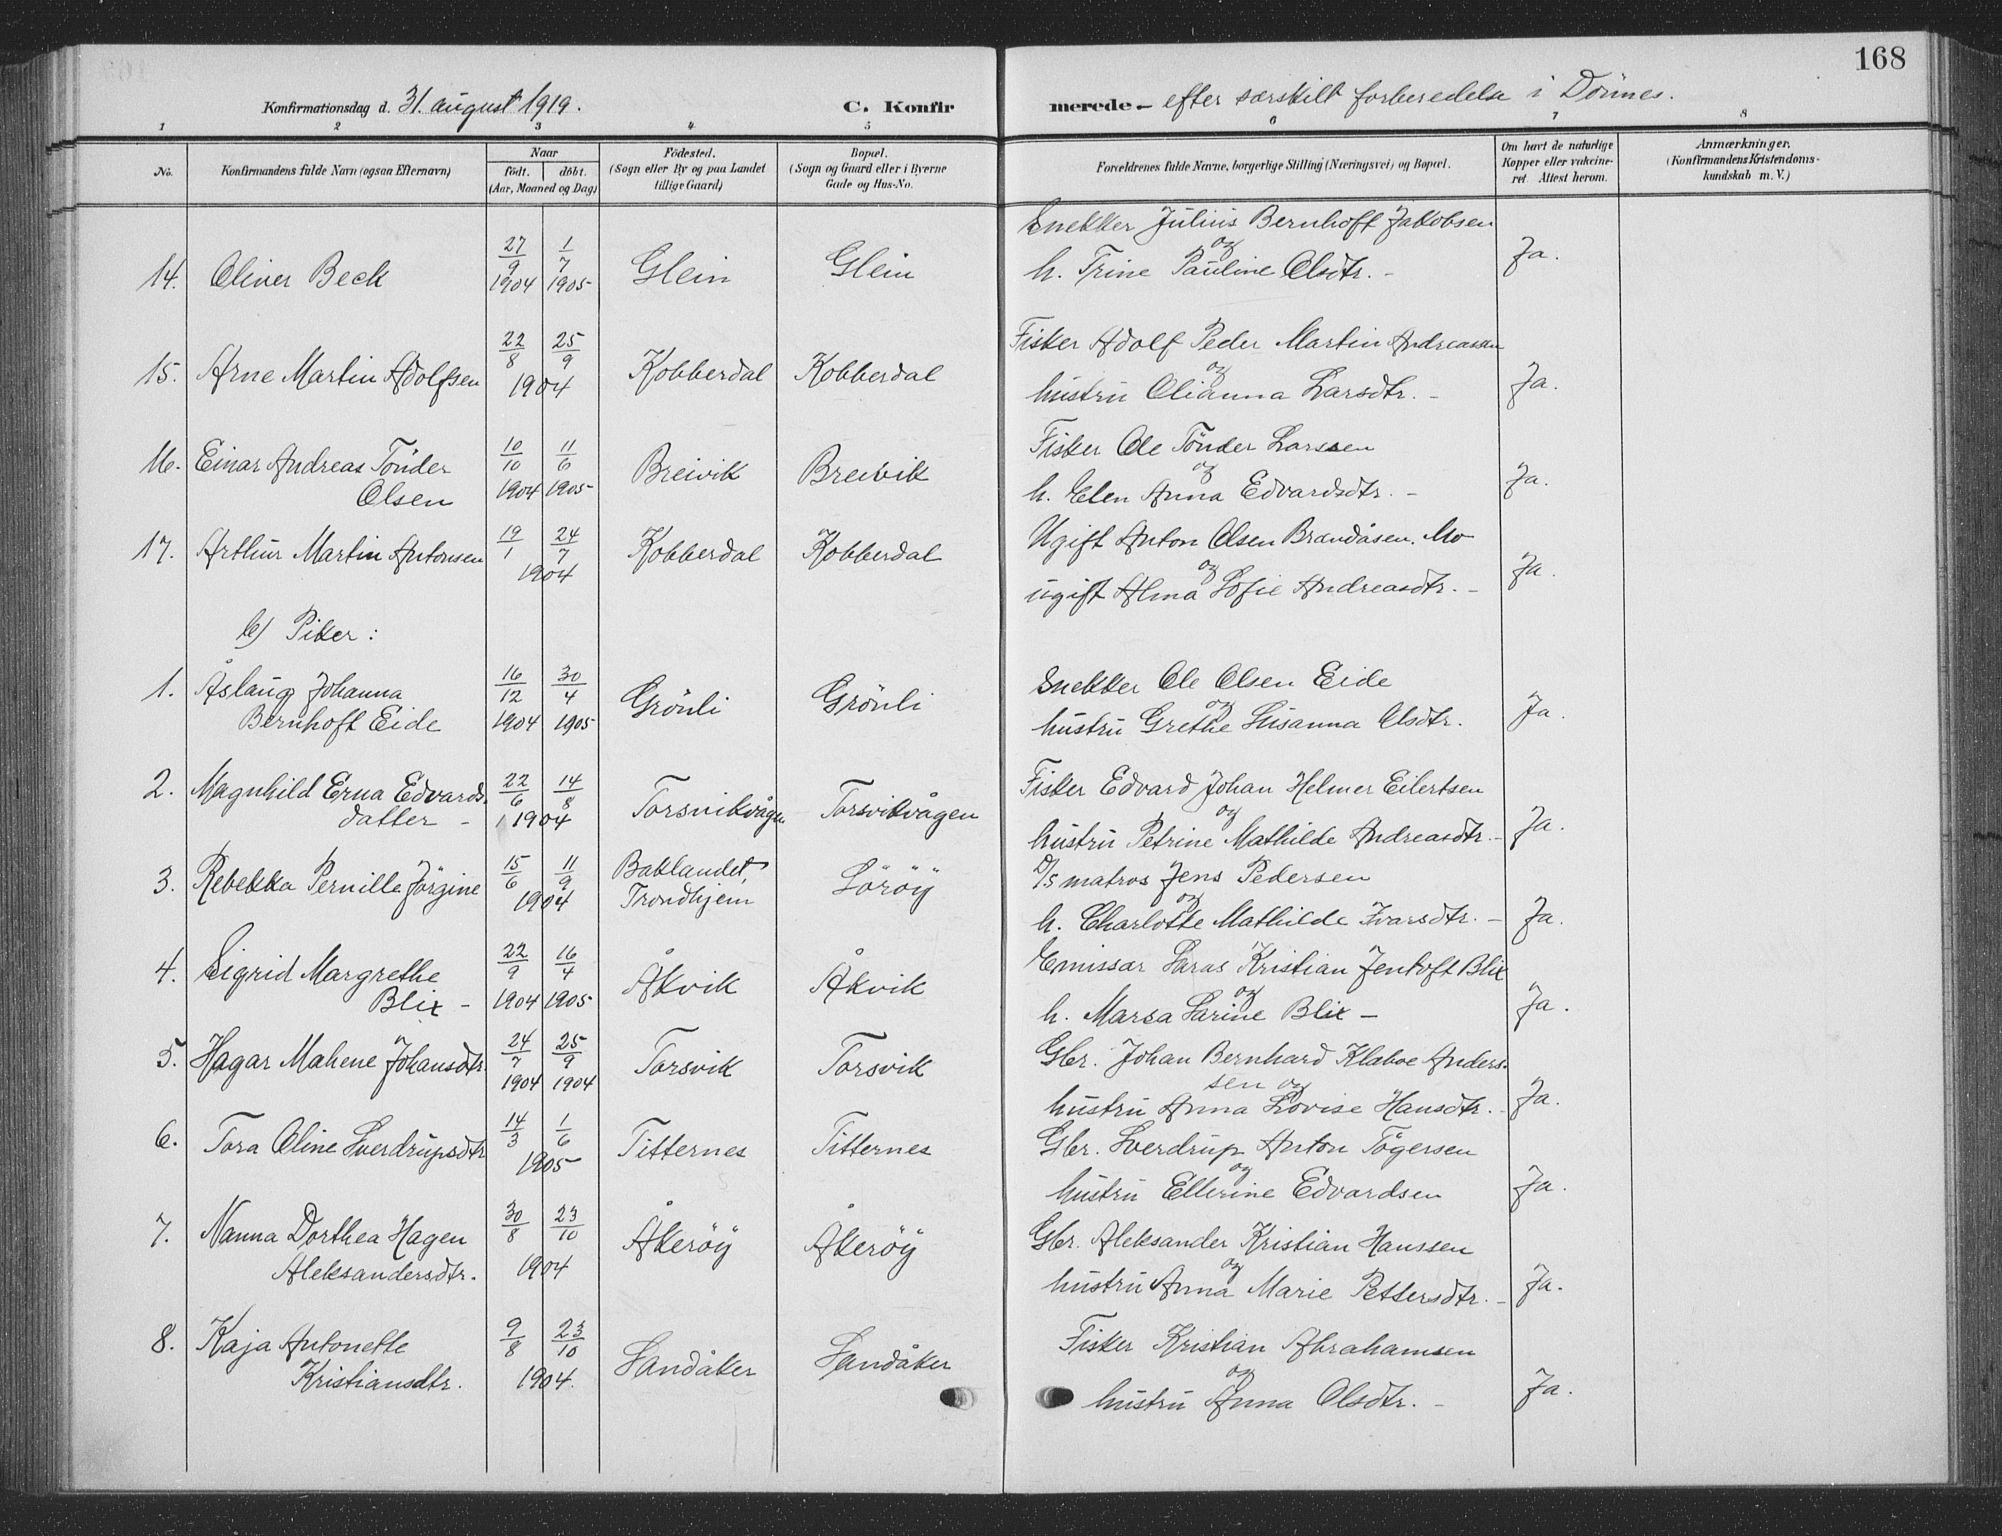 168
Konfirmationsdag d. 31. august 1919. C. Konfirmerede - efter særskilt forberedelse i Dönnes.
1 2 3 4 5 6 7 8
No. | Konfirmandens fulde Navn (ogsaa Efternavn) | Naar födt. döbt. (Aar, Maaned og Dag) | Födested. (Sogn eller By og paa Landet tillige Gaard) | Bopæl. (Sogn og Gaard eller i Byerne Gade og Hus-No. | Forældrenes fulde Navne, borgerlige Stilling (Næringsvei) og Bopæl. | Om havt de naturlige Kopper eller vakcineret. Attest herom. | Anmærkninger. (Konfirmandens Kristendomskundskab m. V.)
14. Oliver Beck | 27/9 1904 | 1/7 1905 | Glein | Glein | Snekker Julius Bernhoft Jakobsen og h. Trine Pauline Olsdtr. - | Ja.
15. Arne Martin Adolfsen | 22/8 25/9 1904 | Kobberdal | Kobberdal | Fisker Adolf Peder Martin Andreassen og hustru Olianna Larsdtr. - | Ja.
16. Einar Andreas Tönder Olsen | 10/10 1904 | 11/6 1905 | Breivik | Breivik | Fisker Ole Tönder Larssen og h. Elen Anna Edvardsdtr. - | Ja.
17. Arthur Martin Antonsen | 19/1 24/7 1904 | Kobberdal | Kobberdal | Ugift Anton Olsen Brandåsen, Mo og ugift Alma Sofie Andreasdtr. - | Ja.
b) Piker:
1. Åslaug Johanna Bernhoft Eide | 16/12 1904 | 30/4 1905 | Grönli | Grönli | Snekker Ole Olsen Eide og hustru Grethe Susanna Olsdtr. | Ja.
2. Magnhild Erna Edvardsdatter - | 22/6 14/8 1904 | Torsvikvågen | Torsvikvågen | Fisker Edvard Johan Helmer Eilertsen og hustru Petrine Mathilde Andreasdtr. - | Ja.
3. Rebekka Pernille Jörgine | 15/6 11/9 1904 | Baklandet, Trondhjem | Söröy | D/S matros Jens Pedersen og h. Charlotte Mathilde Ivarsdtr. - | Ja.
4. Sigrid Margrethe Blix - | 22/9 1904 | 16/4 1905 | Åkvik | Åkvik | Emissær Laras Kristian Jentoft Blix og h. Marsa Sarine Blix - | Ja.
5. Hagar Mahene Johansdtr. | 24/7 1904 | 25/9 1904 | Torsvik | Torsvik | Gbr. Johan Bernhard Klaboe Anderssen og hustru Anna Lovise Hansdtr. - | Ja.
6. Tora Oline Sverdrupsdtr | 14/3 1/6 1905 | Titternes | Titternes | Gbr. Sverdrup Anton Tögersen og hustru Ellerine Edvardsen | Ja.
7. Nanna Dorthea Hagen Aleksandersdtr. | 30/8 23/10 1904 | Åkeröy | Åkeröy | Gbr. Aleksander Kristian Hanssen og hustru Anna Marie Pettersdtr. - | Ja.
8. Kaja Antonette Kristiansdtr. | 9/8 23/10 1904. | Sandåker | Sandåker | Fisker Kristian Abrahamsen og hustru Anna Olsdtr. - | Ja.